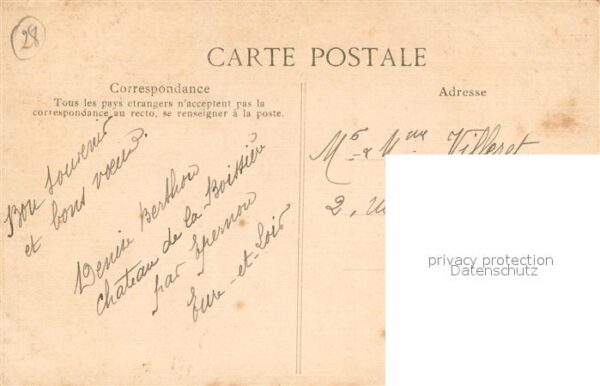 28
CARTE POSTALE
Correspondance
Tous les pays etrangers n'acceptent pas la
correspondance au recto, se renseigner à la poste.
Bon souvenir
et bons voeux.
Denise Berthou
Château de la Boissière
par Epernon
Eure-et-Loir
Adresse
Mr & Mme Villeret
2,
privacy protection
Datenschutz